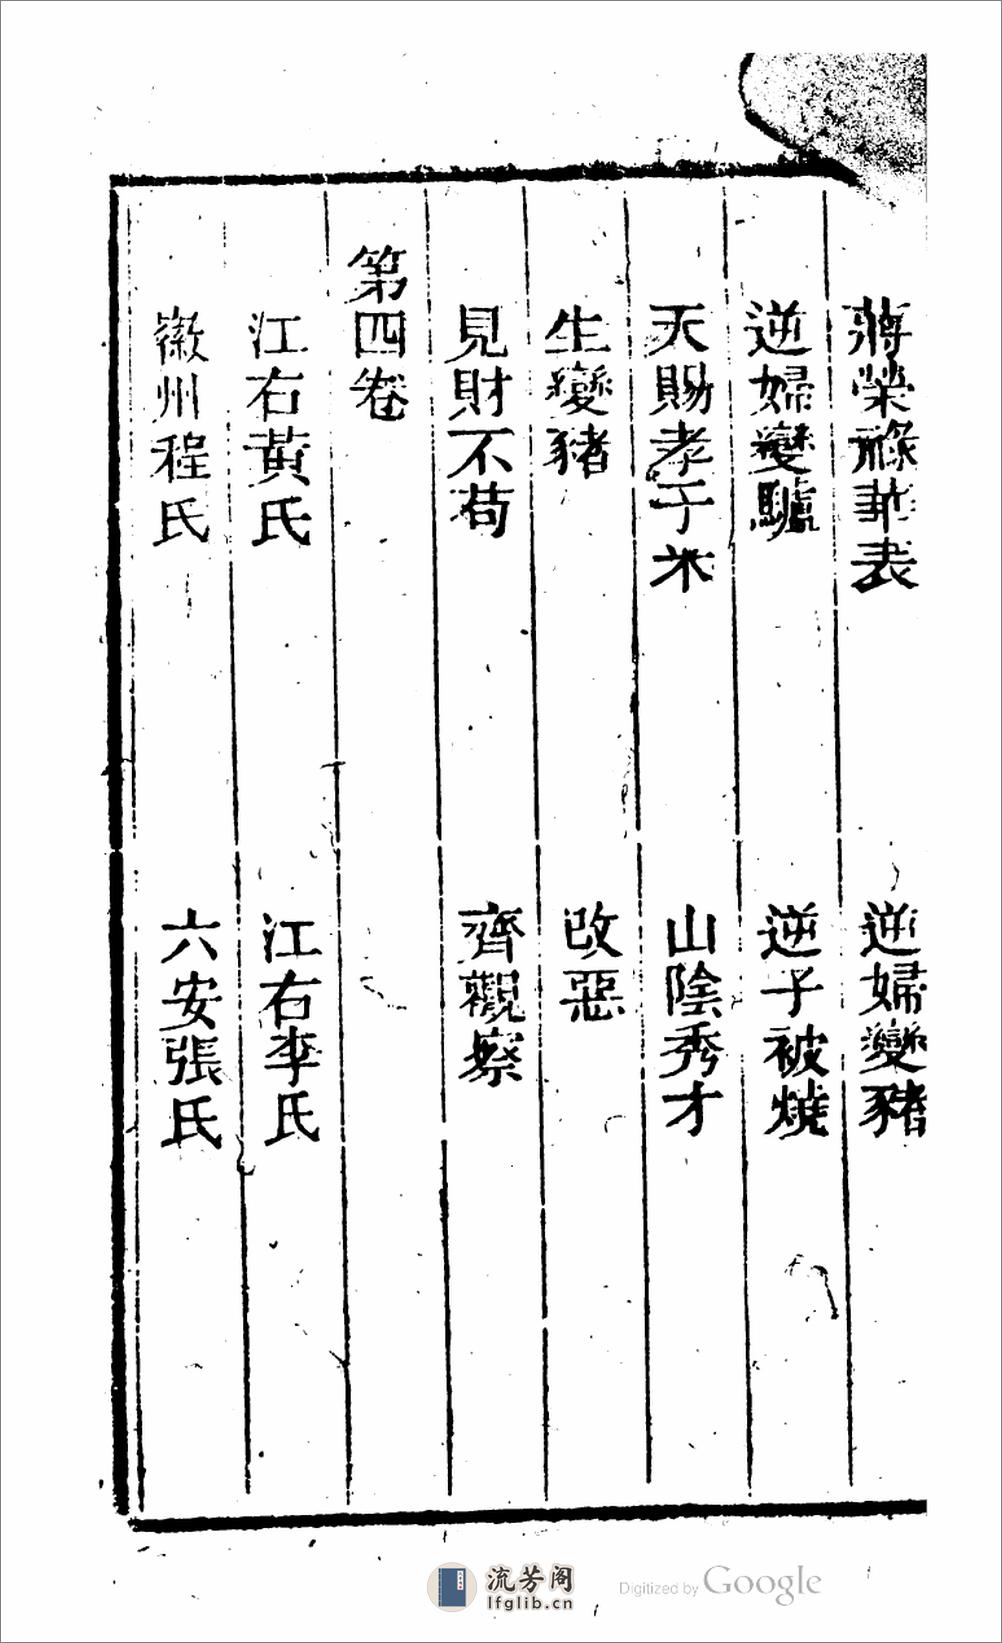 蔣榮祿華表　逆婦變豬
逆婦變驢　逆子被燒
天賜孝子米　山陰秀才
生變豬　改惡
見財不苟　齊觀察
第四卷
江右黃氏　江右李氏
徽州程氏　六安張氏
流芳阁
lfglib.cn
Digitized by Google